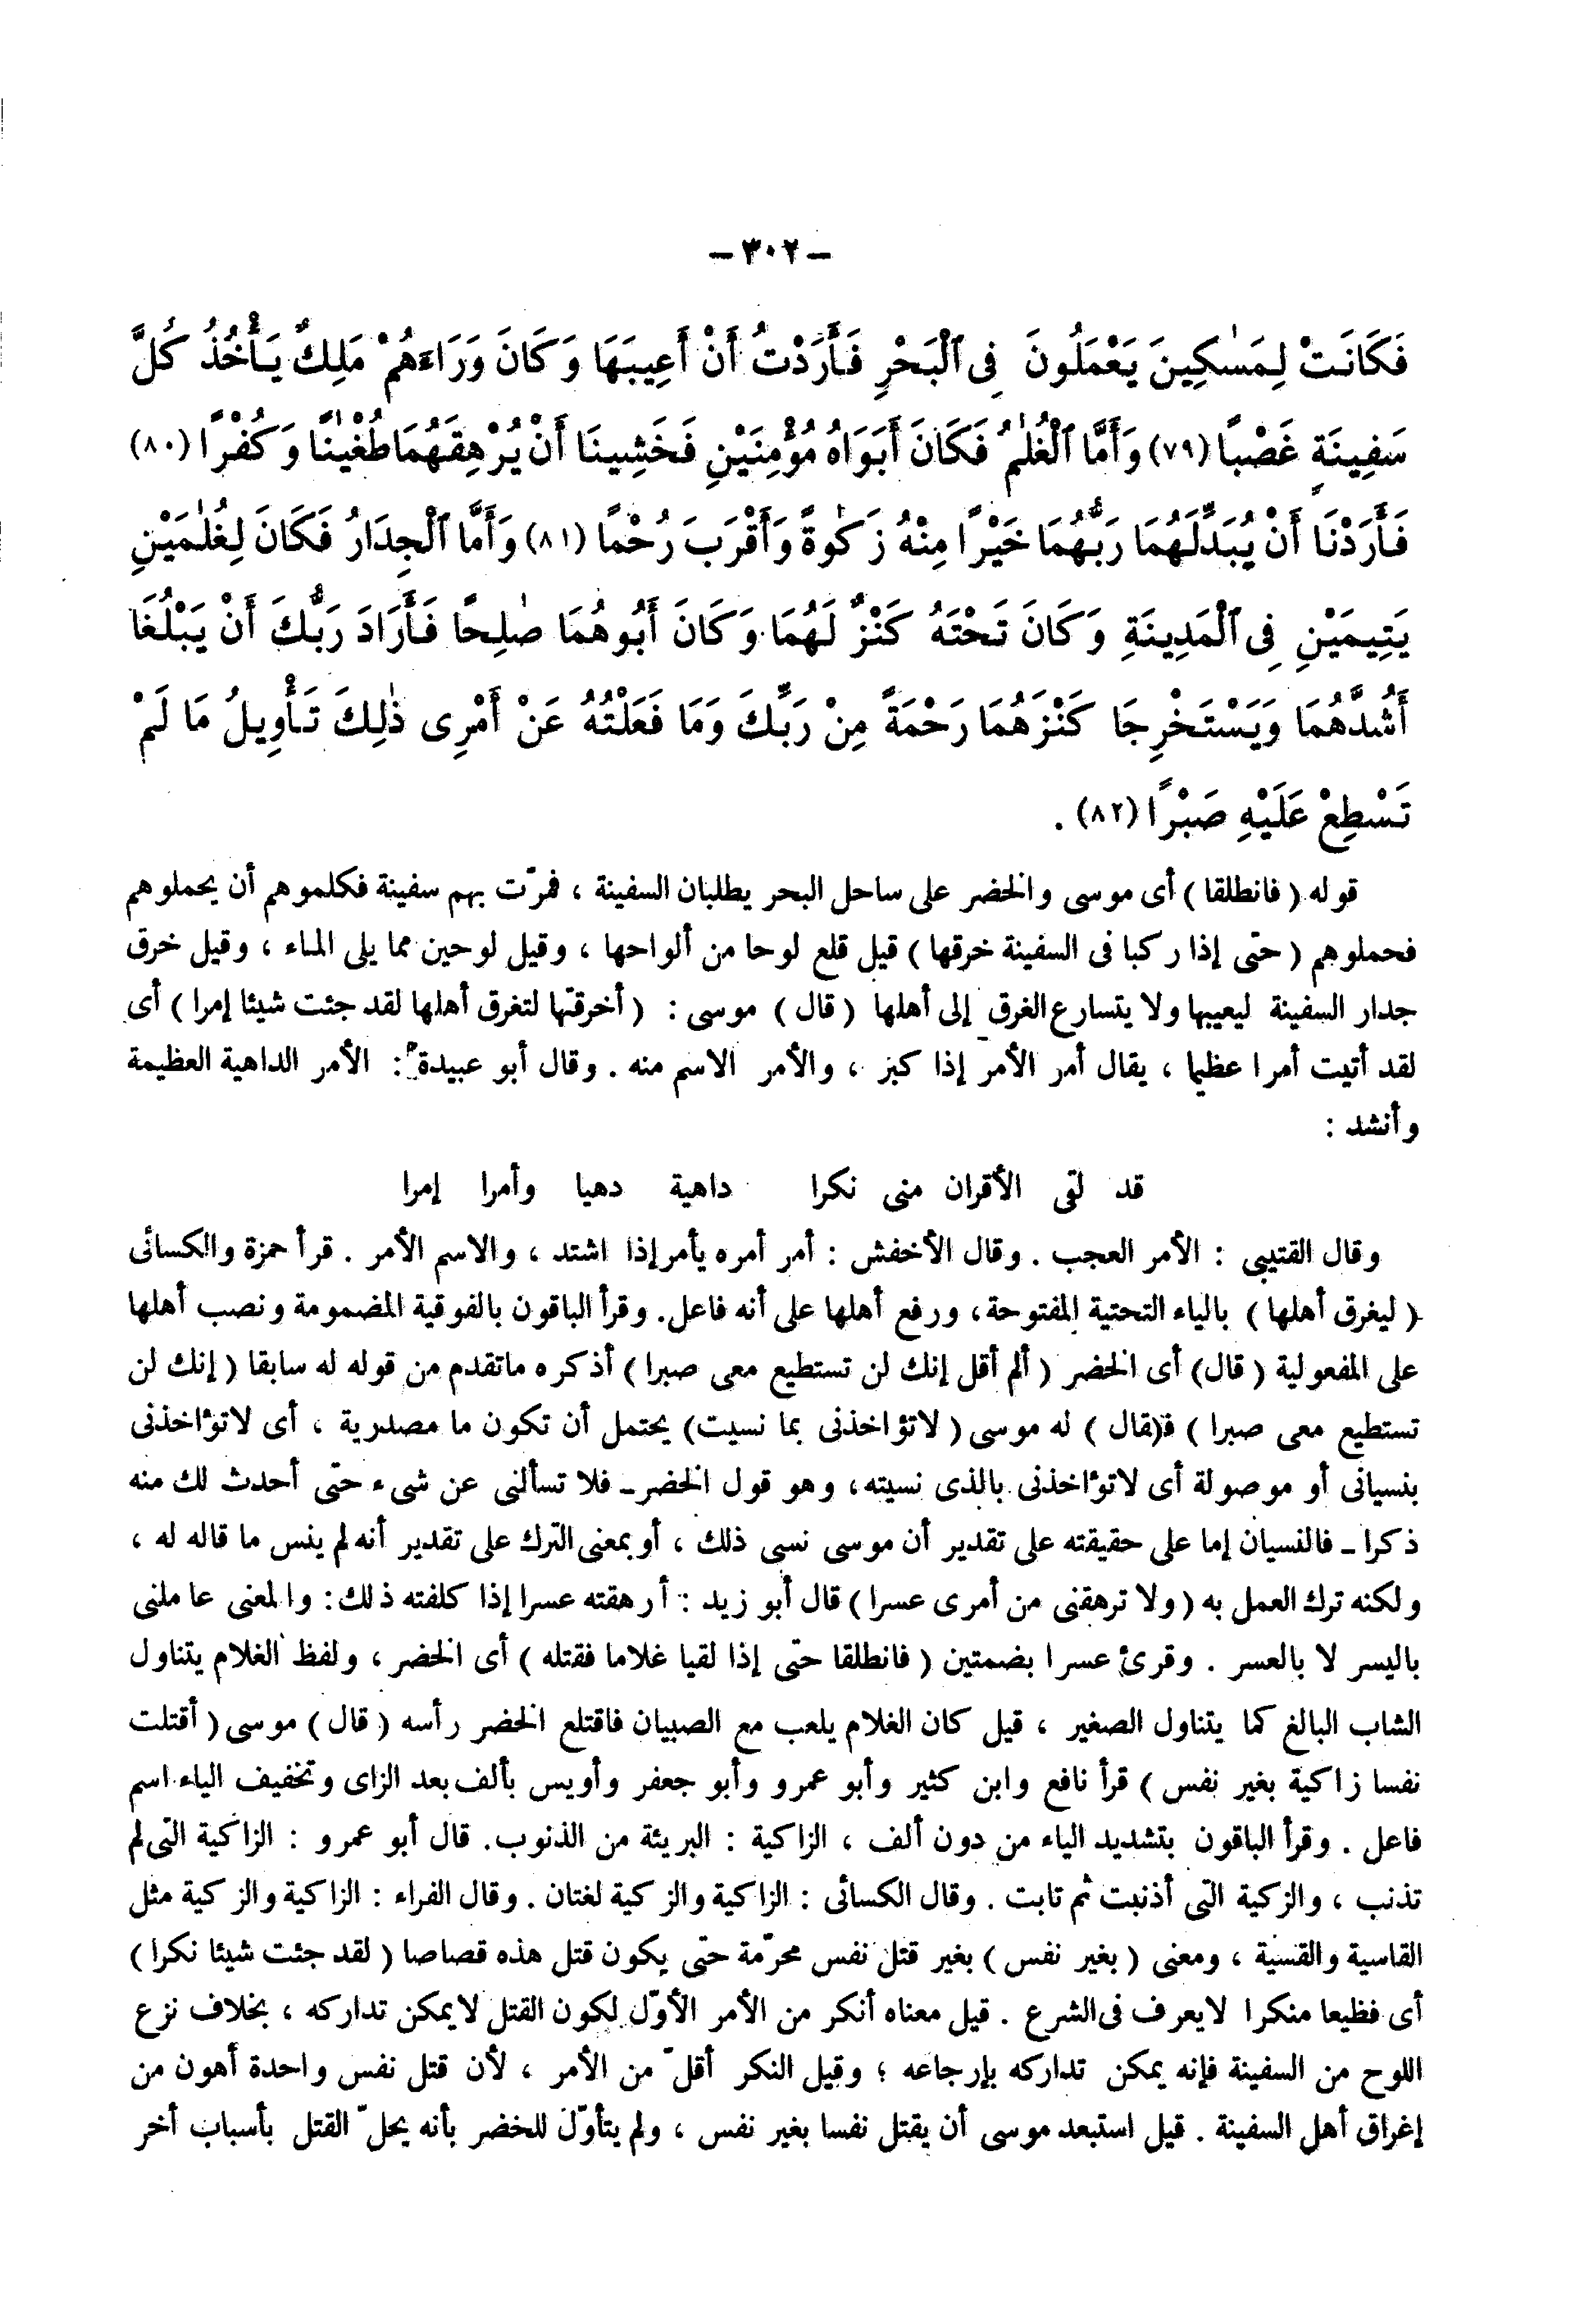 – ٣٠٢ –
فَكَانَتْ لِمَسٰكِينَ يَعْمَلُونَ فِى ٱلْبَحْرِ فَأَرَدْتُ أَنْ أَعِيبَهَا وَكَانَ وَرَاءَهُمْ مَلِكٌ يَأْخُذُ كُلَّ
سَفِينَةٍ غَصْبًا (٧٩) وَأَمَّا ٱلْغُلٰمُ فَكَانَ أَبَوَاهُ مُؤْمِنَيْنِ فَخَشِينَا أَنْ يُرْهِقَهُمَا طُغْيٰنًا وَكُفْرًا (٨٠)
فَأَرَدْنَا أَنْ يُبَدِّلَهُمَا رَبُّهُمَا خَيْرًا مِنْهُ زَكٰوةً وَأَقْرَبَ رُحْمًا (٨١) وَأَمَّا ٱلْجِدَارُ فَكَانَ لِغُلٰمَيْنِ
يَتِيمَيْنِ فِى ٱلْمَدِينَةِ وَكَانَ تَحْتَهُ كَنْزٌ لَهُمَا وَكَانَ أَبُوهُمَا صٰلِحًا فَأَرَادَ رَبُّكَ أَنْ يَبْلُغَا
أَشُدَّهُمَا وَيَسْتَخْرِجَا كَنْزَهُمَا رَحْمَةً مِنْ رَبِّكَ وَمَا فَعَلْتُهُ عَنْ أَمْرِى ذٰلِكَ تَأْوِيلُ مَا لَمْ
تَسْطِعْ عَلَيْهِ صَبْرًا (٨٢) .
قوله ( فانطلقا ) أى موسى والخضر على ساحل البحر يطلبان السفينة ، فمرّت بهم سفينة فكلموهم أن يحملوهم
فحملوهم ( حتى إذا ركبا فى السفينة خرقها ) قيل قلع لوحا من ألواحها ، وقيل لوحين مما يلى الماء ، وقيل خرق
جدار السفينة ليعيبها ولا يتسارع الغرق إلى أهلها ( قال ) موسى : ( أخرقتها لتغرق أهلها لقد جئت شيئا إمرا ) أى
لقد أتيت أمرا عظيما ، يقال أمر الأمر إذا كبر ، والأمر الاسم منه . وقال أبو عبيدة : الأمر الداهية العظيمة
وأنشد :
قد لقى الأقران منى نكرا داهية دهيا وأمرا إمرا
وقال القتيبى : الأمر العجب . وقال الأخفش : أمر أمره يأمر إذا اشتد ، والاسم الأمر . قرأ حمزة والكسائى
( ليغرق أهلها ) بالياء التحتية المفتوحة ، ورفع أهلها على أنه فاعل . وقرأ الباقون بالفوقية المضمومة ونصب أهلها
على المفعولية ( قال ) أى الخضر ( ألم أقل إنك لن تستطيع معى صبرا ) أذكره ماتقدم من قوله له سابقا ( إنك لن
تستطيع معى صبرا ) فـ(قال ) له موسى ( لاتؤاخذنى بما نسيت) يحتمل أن تكون ما مصدرية ، أى لاتؤاخذنى
بنسيانى أو موصولة أى لاتؤاخذنى بالذى نسيته ، وهو قول الخضر ـ فلا تسألنى عن شىء حتى أحدث لك منه
ذكرا ـ فالنسيان إما على حقيقته على تقدير أن موسى نسى ذلك ، أو بمعنى الترك على تقدير أنه لم ينس ما قاله له ،
ولكنه ترك العمل به ( ولا ترهقنى من أمرى عسرا ) قال أبو زيد : أرهقته عسرا إذا كلفته ذلك : والمعنى عاملنى
باليسر لا بالعسر . وقرئ عسرا بضمتين ( فانطلقا حتى إذا لقيا غلاما فقتله ) أى الخضر ، ولفظ الغلام يتناول
الشاب البالغ كما يتناول الصغير ، قيل كان الغلام يلعب مع الصبيان فاقتلع الخضر رأسه ( قال ) موسى ( أقتلت
نفسا زاكية بغير نفس ) قرأ نافع وابن كثير وأبو عمرو وأبو جعفر وأويس بألف بعد الزاى وتخفيف الياء اسم
فاعل . وقرأ الباقون بتشديد الياء من دون ألف ، الزاكية : البريئة من الذنوب . قال أبو عمرو : الزاكية التى لم
تذنب ، والزكية التى أذنبت ثم تابت . وقال الكسائى : الزاكية والزكية لغتان . وقال الفراء : الزاكية والزكية مثل
القاسية والقسية ، ومعنى ( بغير نفس ) بغير قتل نفس محرّمة حتى يكون قتل هذه قصاصا ( لقد جئت شيئا نكرا )
أى فظيعا منكرا لايعرف فى الشرع . قيل معناه أنكر من الأمر الأوّل لكون القتل لايمكن تداركه ، بخلاف نزع
اللوح من السفينة فإنه يمكن تداركه بإرجاعه ؛ وقيل النكر أقلّ من الأمر ، لأن قتل نفس واحدة أهون من
إغراق أهل السفينة . قيل استبعد موسى أن يقتل نفسا بغير نفس ، ولم يتأوّل للخضر بأنه يحلّ القتل بأسباب أخر